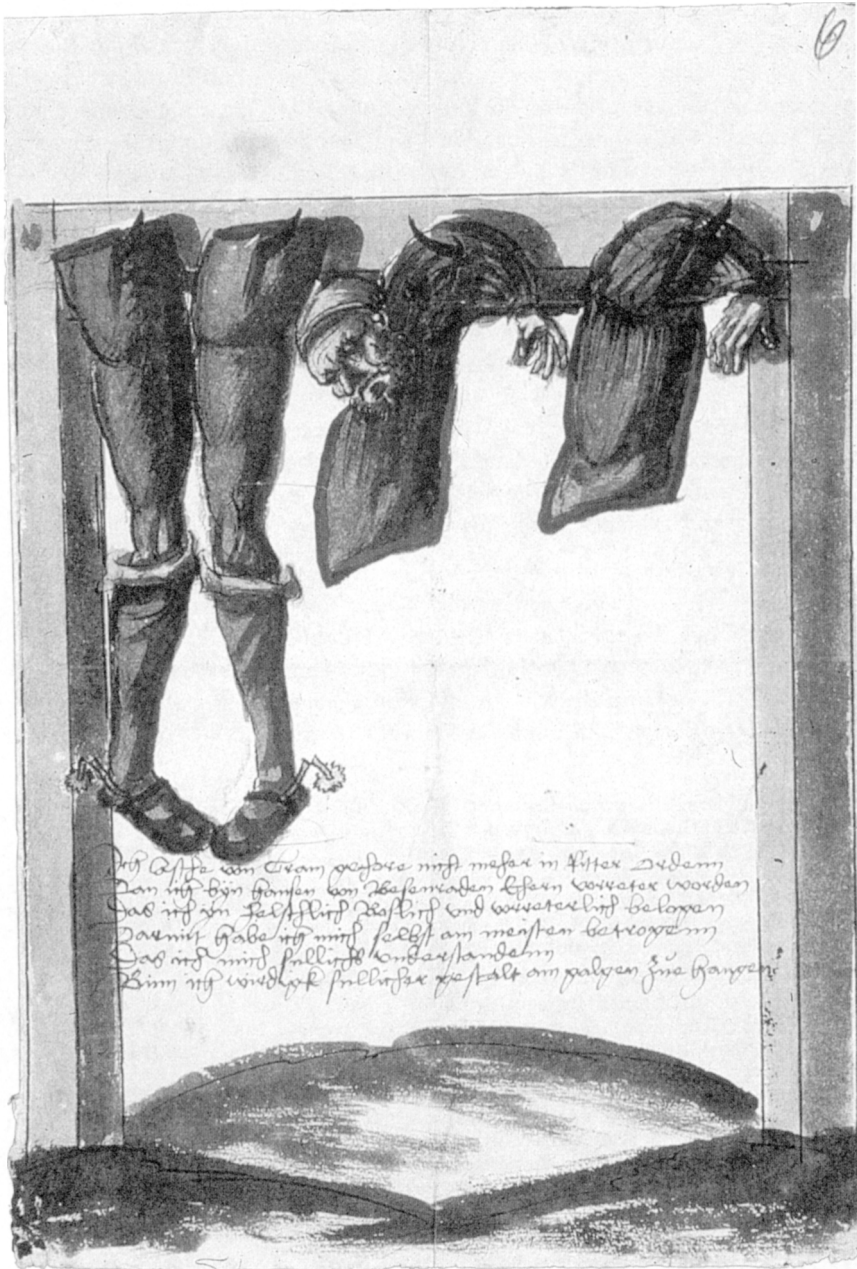 6
Ich Assche von Cram gehore nicht meher in Ritter Ordenn
Dan ich byn Hansen von Besenroden Ehern vorreter worden
Das ich yn felschlich Boslich vnd vorreterlich belogen
Darmit habe ich mich selbst am meisten betrogenn
Das ich mich sullichs vnderstandenn
Binn ich wirdigk sullicher gestalt am galgen zue hangen